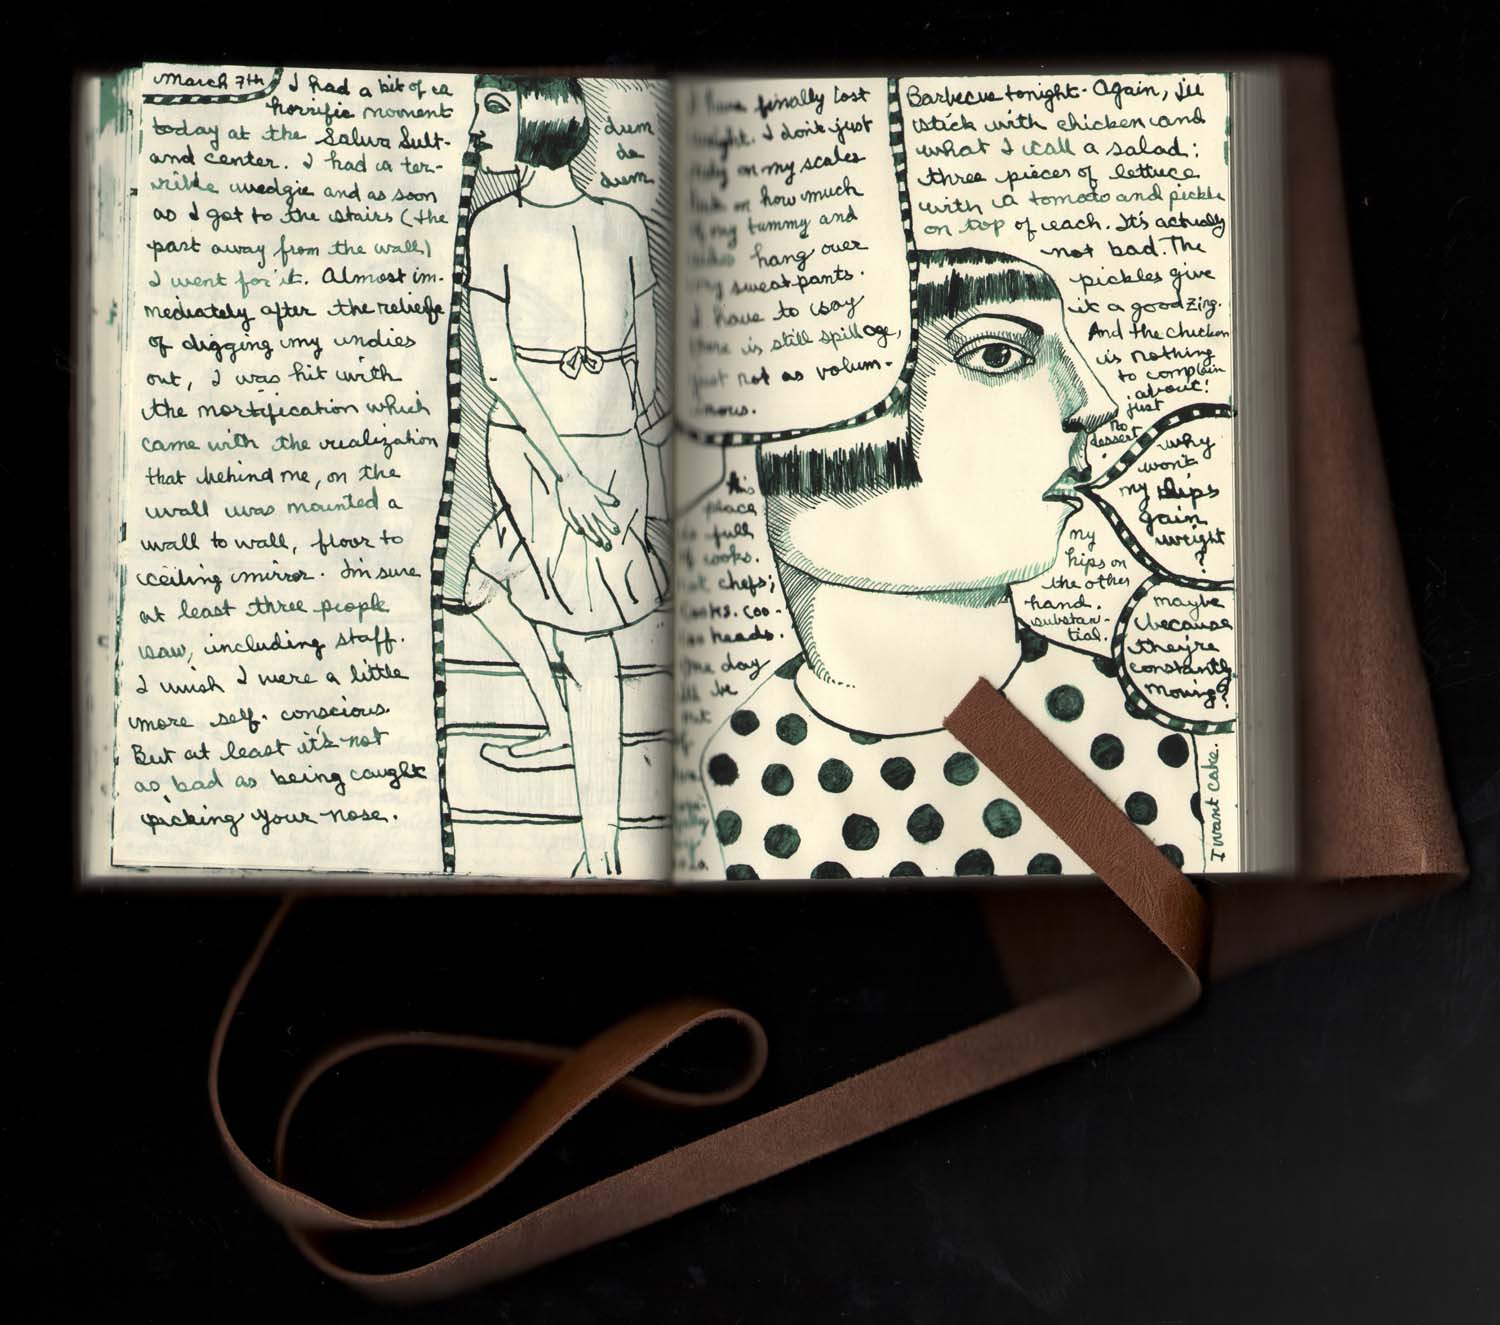 March 7th I had a bit of a
horrific moment
today at the Salwa Sult-
and Center. I had a ter-
rible wedgie and as soon
as I got to the stairs (the
part away from the wall)
I went for it. Almost im-
mediately after the reliefe
of digging my undies
out, I was hit with
the mortification which
came with the realization
that behind me, on the
wall was mounted a
wall to wall, floor to
ceiling mirror. I'm sure
at least three people
saw, including staff.
I wish I were a little
more self-conscious.
But at least it's not
as bad as being caught
picking your nose.
dum
de
dum
I have finally lost
weight. I don't just
rely on my scales
but on how much
of my tummy and
sides hang over
my sweatpants.
I have to say
there is still spillage,
just not as volum-
inous.
This
place
is full
of cooks.
not chefs;
cooks. Coo-
coo heads.
One day
I'll be
out
of
Barbecue tonight. Again, I'll
stick with chicken and
what I call a salad:
three pieces of lettuce
with a tomato and pickle
on top of each. It's actually
not bad. The
pickles give
it a good zing.
And the chicken
is nothing
to complain
about!
just
no
dessert
why
won't
my lips
gain
weight
?
my
hips on
the other
hand.
substan-
tial.
maybe
because
they're
constantly
moving?
I want cake.